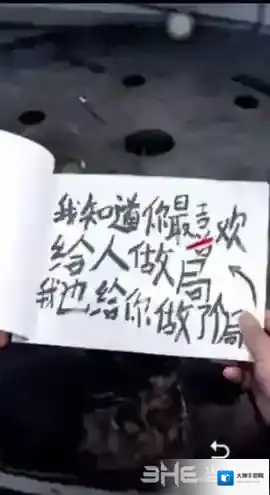 我知道你最喜欢
给人做局
我也给你做了局
3HE
大神手游网